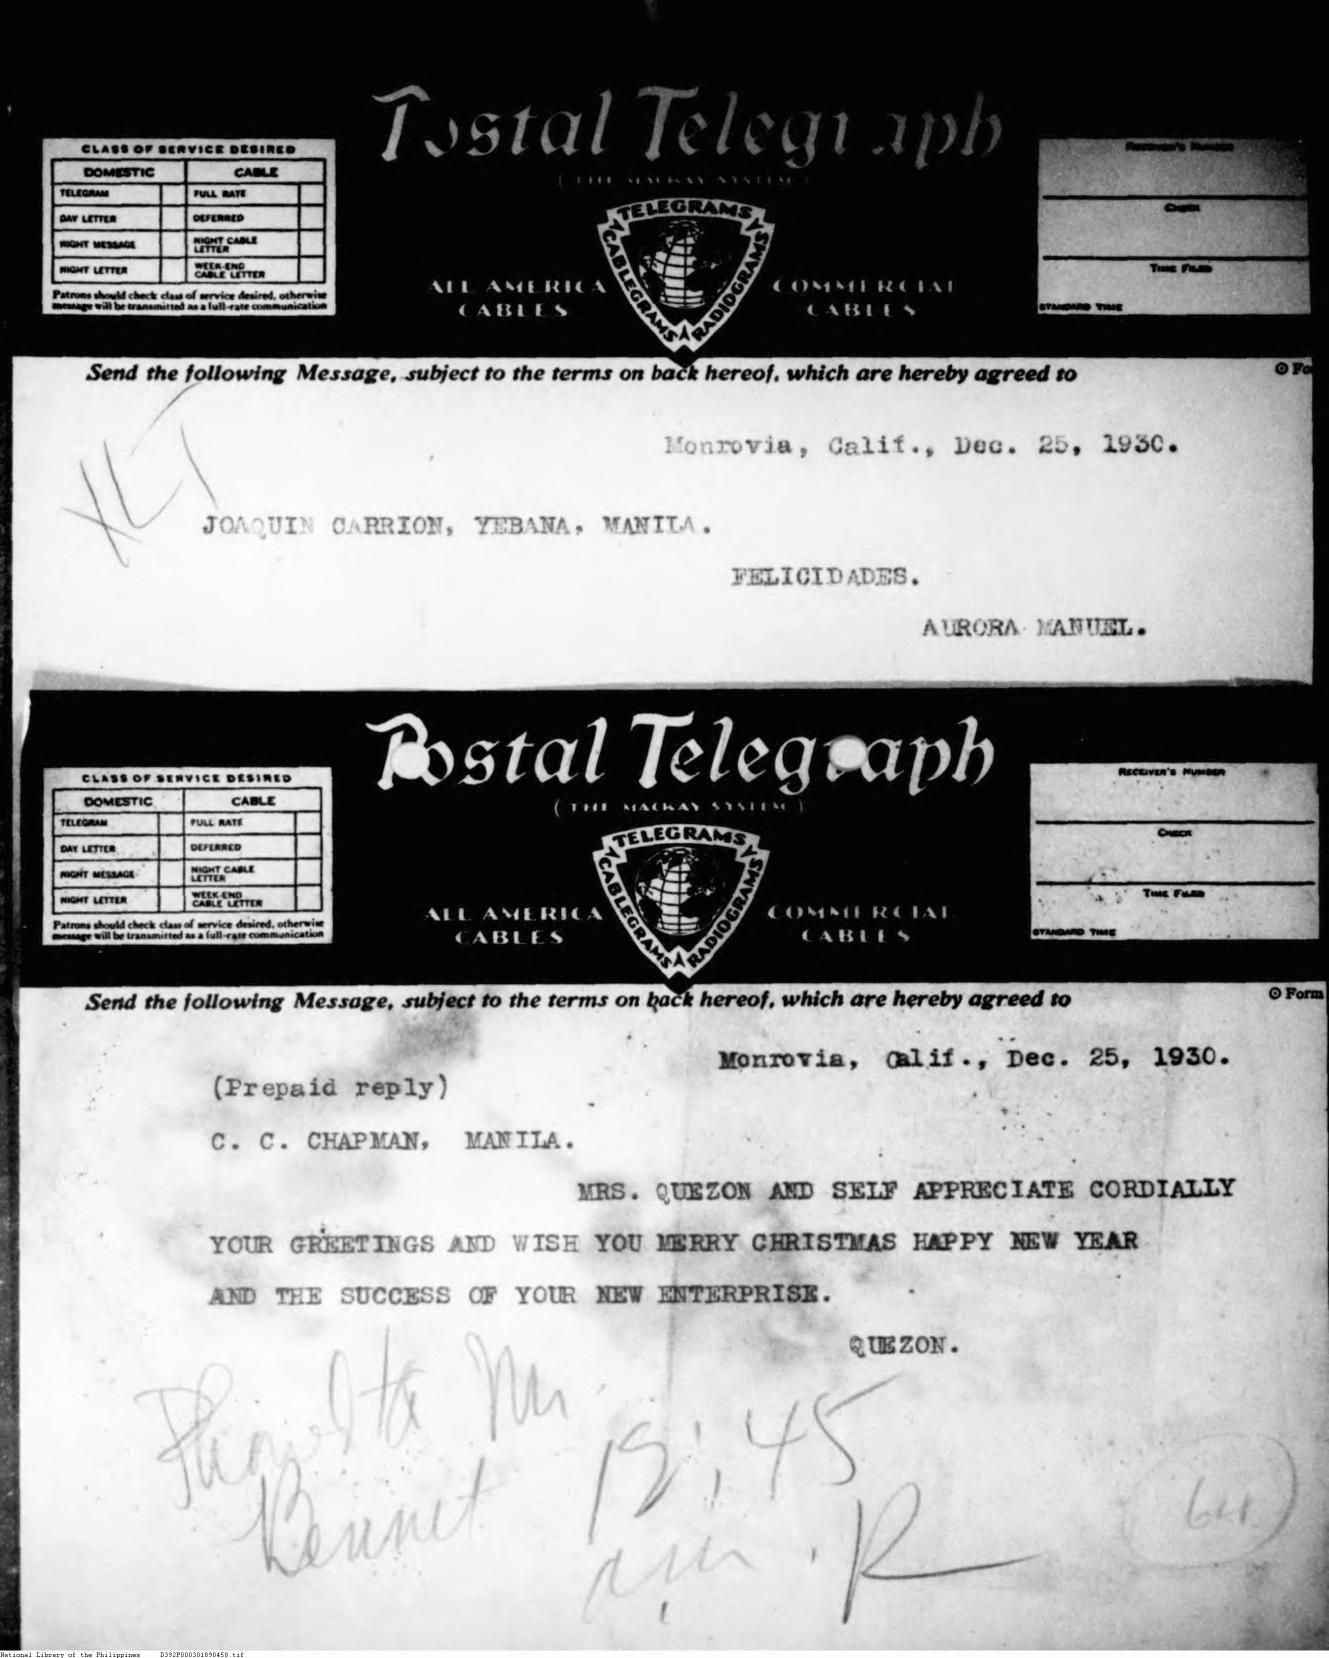 Postal Telegraph
(THE MACKAY SYSTEM)
CLASS OF SERVICE DESIRED
DOMESTIC CABLE
TELEGRAM FULL RATE
DAY LETTER DEFERRED
NIGHT MESSAGE NIGHT CABLE LETTER
NIGHT LETTER WEEK-END CABLE LETTER
Patrons should check class of service desired, otherwise
message will be transmitted as a full-rate communication
TELEGRAMS
CABLEGRAMS
RADIOGRAMS
ALL AMERICA
CABLES
COMMERCIAL
CABLES
RECEIVER'S NUMBER
CHECK
TIME FILED
STANDARD TIME
Send the following Message, subject to the terms on back hereof, which are hereby agreed to
Monrovia, Calif., Dec. 25, 1930.
XLT
JOAQUIN CARRION, YEBANA, MANILA.
FELICIDADES.
AURORA MANUEL.
Postal Telegraph
(THE MACKAY SYSTEM)
CLASS OF SERVICE DESIRED
DOMESTIC CABLE
TELEGRAM FULL RATE
DAY LETTER DEFERRED
NIGHT MESSAGE NIGHT CABLE LETTER
NIGHT LETTER WEEK-END CABLE LETTER
Patrons should check class of service desired, otherwise
message will be transmitted as a full-rate communication
TELEGRAMS
CABLEGRAMS
RADIOGRAMS
ALL AMERICA
CABLES
COMMERCIAL
CABLES
RECEIVER'S NUMBER
CHECK
TIME FILED
STANDARD TIME
Send the following Message, subject to the terms on back hereof, which are hereby agreed to
Form
Monrovia, Calif., Dec. 25, 1930.
(Prepaid reply)
C. C. CHAPMAN, MANILA.
MRS. QUEZON AND SELF APPRECIATE CORDIALLY
YOUR GREETINGS AND WISH YOU MERRY CHRISTMAS HAPPY NEW YEAR
AND THE SUCCESS OF YOUR NEW ENTERPRISE.
QUEZON.
Phoned to Mr.
Bennet
12:45
a.m. R
64
National Library of the Philippines D392P000301890458.tif